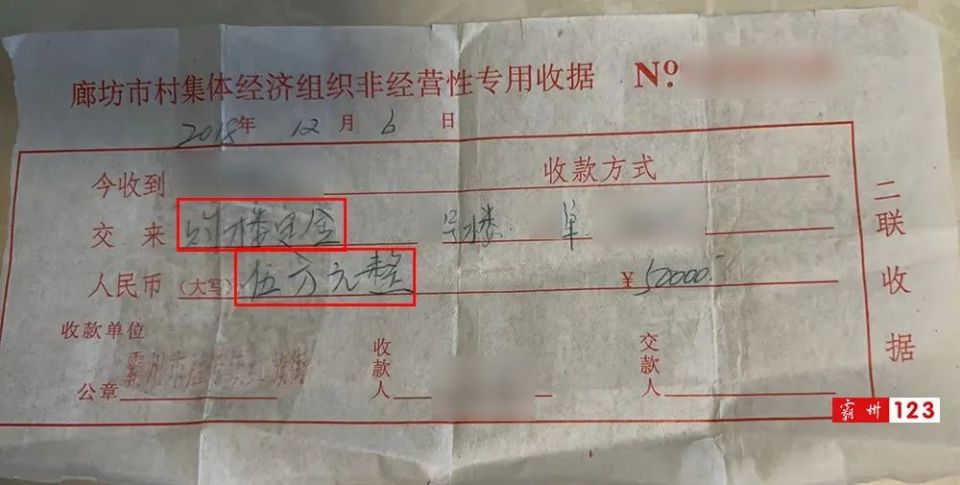 廊坊市村集体经济组织非经营性专用收据 Nº
2018年 12月 6日
今收到 收款方式
交来 购楼定金 号楼 单
人民币(大写) 伍万元整 ¥50000
收款单位
公章 霸州市
收款人
交款人
二联收据
霸州 123